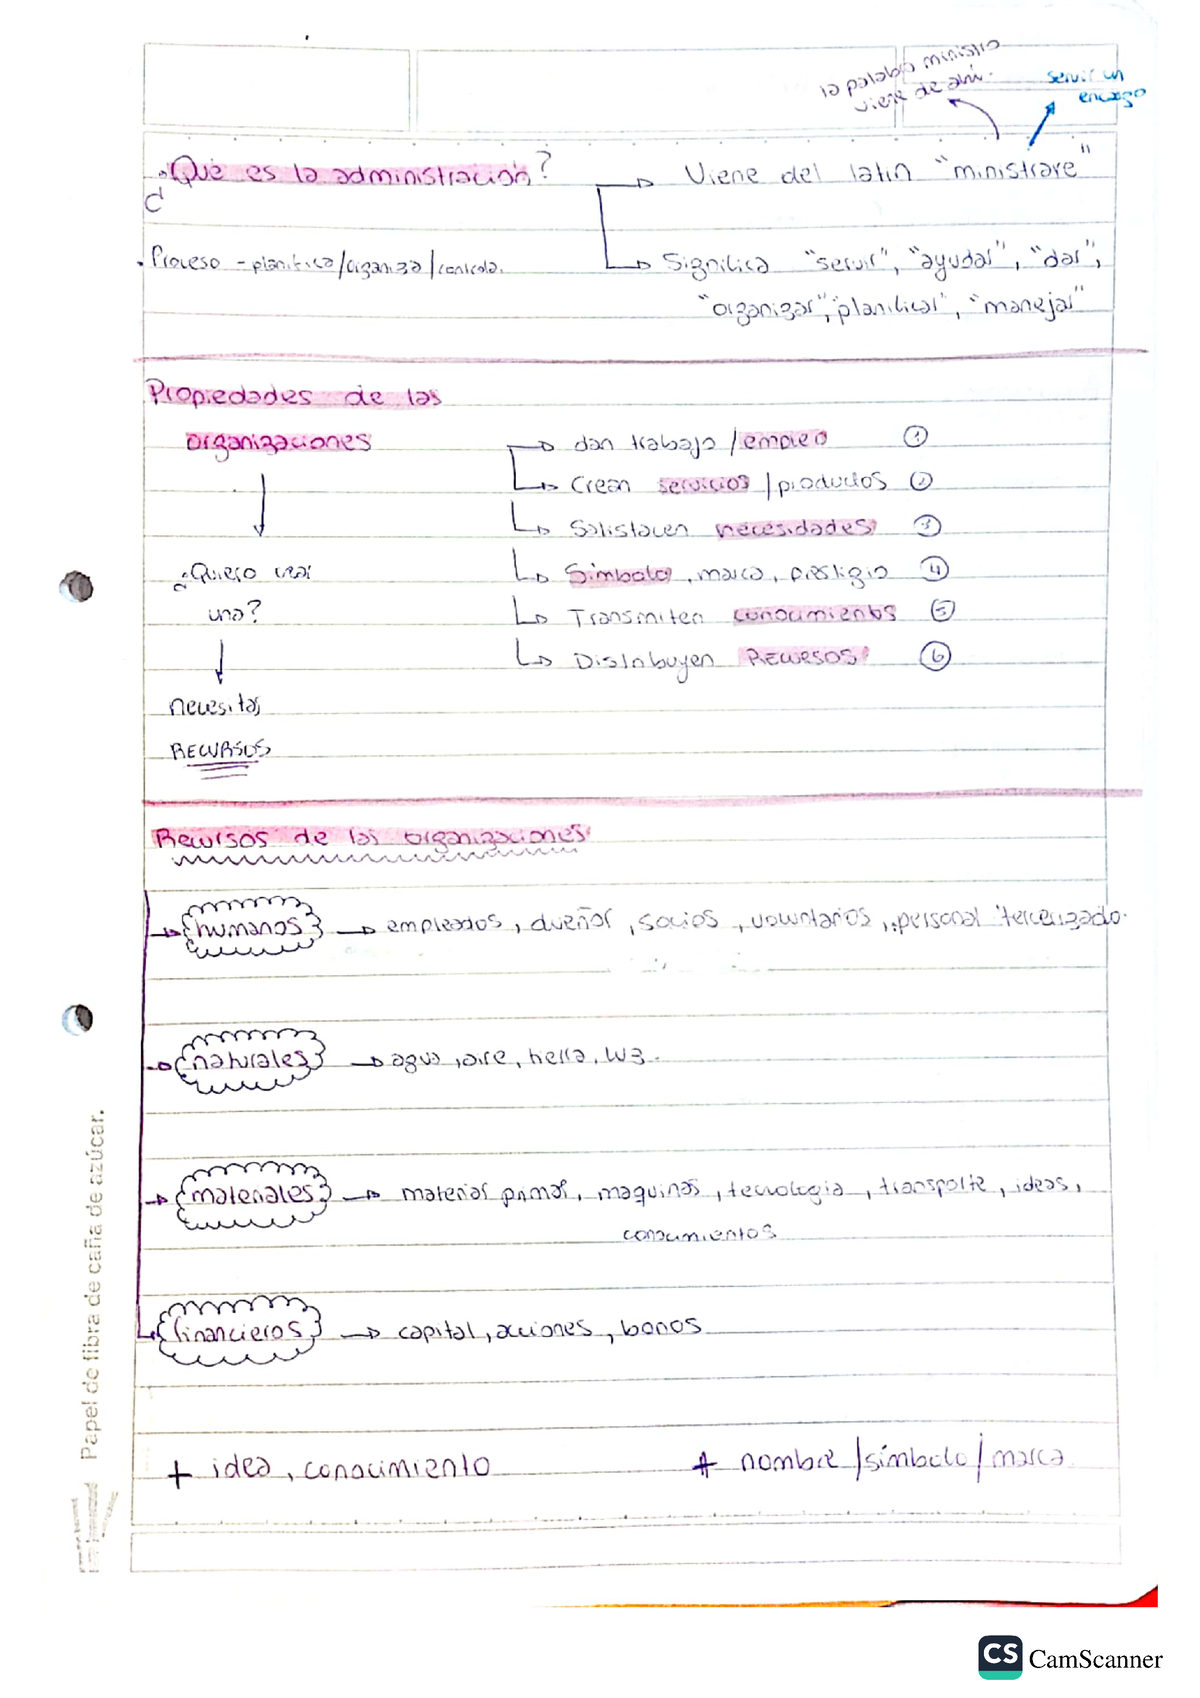 la palabra ministro
viene de ahí.
servir un
encargo
¿Qué es la administración?
Viene del latin "ministrare"
• Proceso - planifica/organiza/controla.
Significa "servir", "ayudar", "dar",
"organizar", "planificar", "manejar"
Propiedades de las
organizaciones
dan trabajo / empleo 1
Crean servicios / productos 2
Satisfacen necesidades 3
¿Quiero crear
una?
Simbolo, marca, prestigio 4
Transmiten conocimientos 5
Distribuyen Recursos 6
necesitas
RECURSOS
Recursos de las organizaciones
humanos → empleados, dueños, socios, voluntarios, personal tercerizado.
naturales → agua, aire, tierra, luz.
materiales → materias primas, maquinas, tecnologia, transporte, ideas,
conocimientos
financieros → capital, acciones, bonos
+ idea, conocimiento
+ nombre / símbolo / marca
Papel de fibra de caña de azúcar.
CS CamScanner